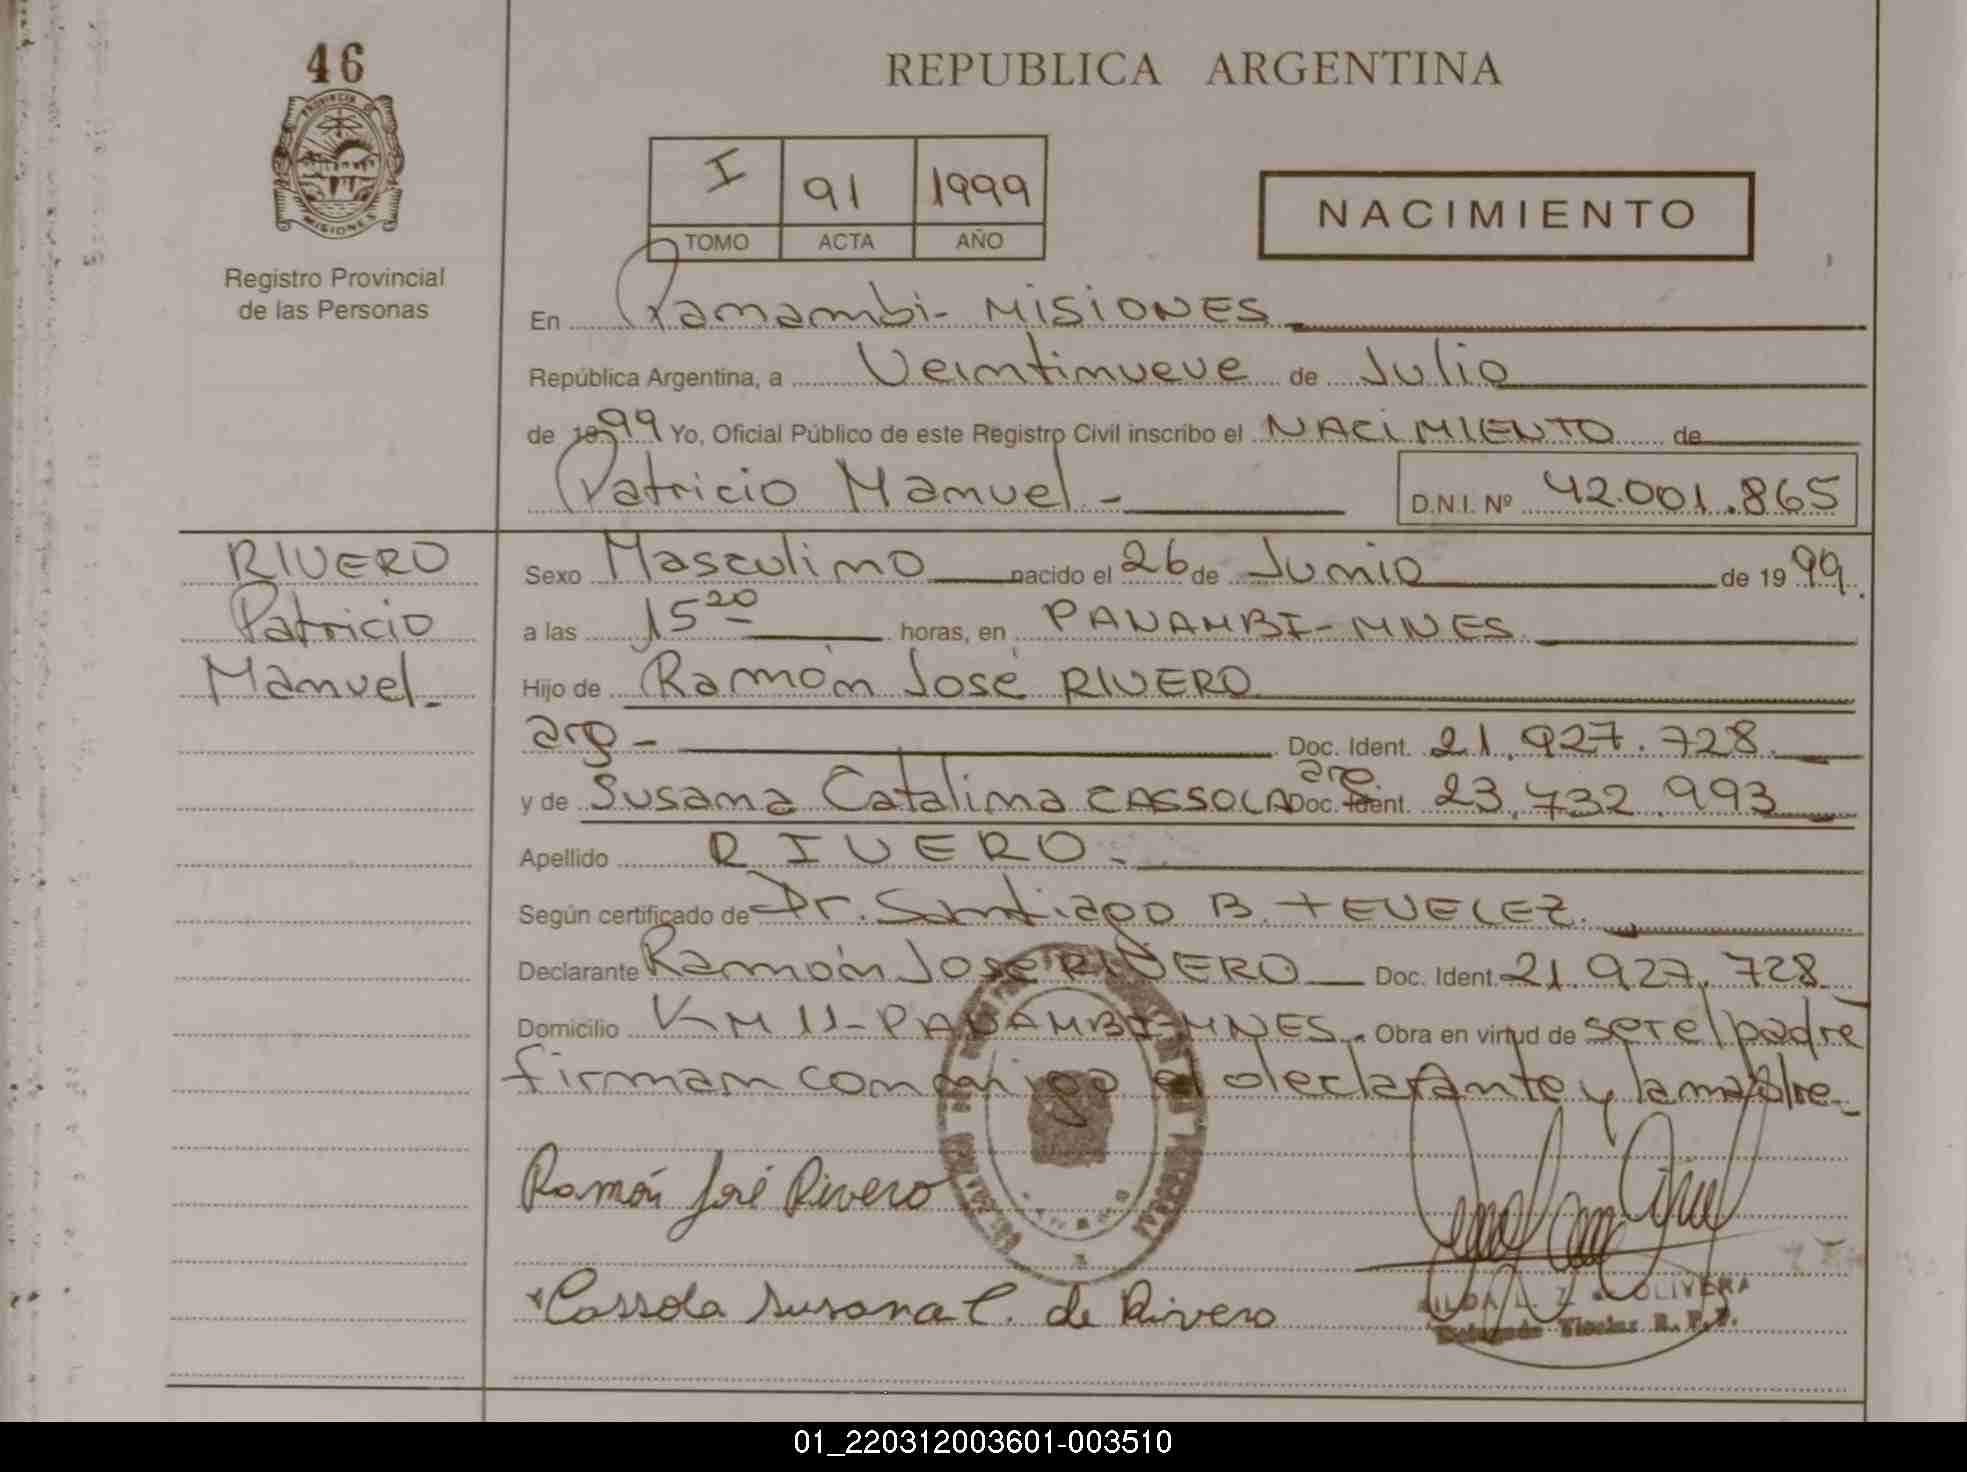 46
REPUBLICA ARGENTINA
PROVINCIA DE
MISIONES
Registro Provincial
de las Personas
I 91 1999
TOMO ACTA AÑO
NACIMIENTO
En Panambi - MISIONES
República Argentina, a Veintinueve de Julio
de 1999 Yo, Oficial Público de este Registro Civil inscribo el NACIMIENTO de
Patricio Manuel - D.N.I. Nº 42.001.865
RIVERO
Patricio
Manuel -
Sexo Masculino nacido el 26 de Junio de 19 99.
a las 15 20 horas, en PANAMBI - MNES
Hijo de Ramón José RIVERO
arg - Doc. Ident. 21.927.728
y de Susana Catalina CASSOLA arg Doc. Ident. 23.732.993
Apellido RIVERO -
Según certificado de Dr. Santiago B. TEVELEZ.
Declarante Ramón José RIVERO Doc. Ident. 21.927.728
Domicilio KM 11 - PANAMBI - MNES. Obra en virtud de ser el padre
firman conmigo el declarante y la madre -
Ramón José Rivero
Cassola Susana C. de Rivero
OLIVERA
R. P. P.
01_220312003601-003510